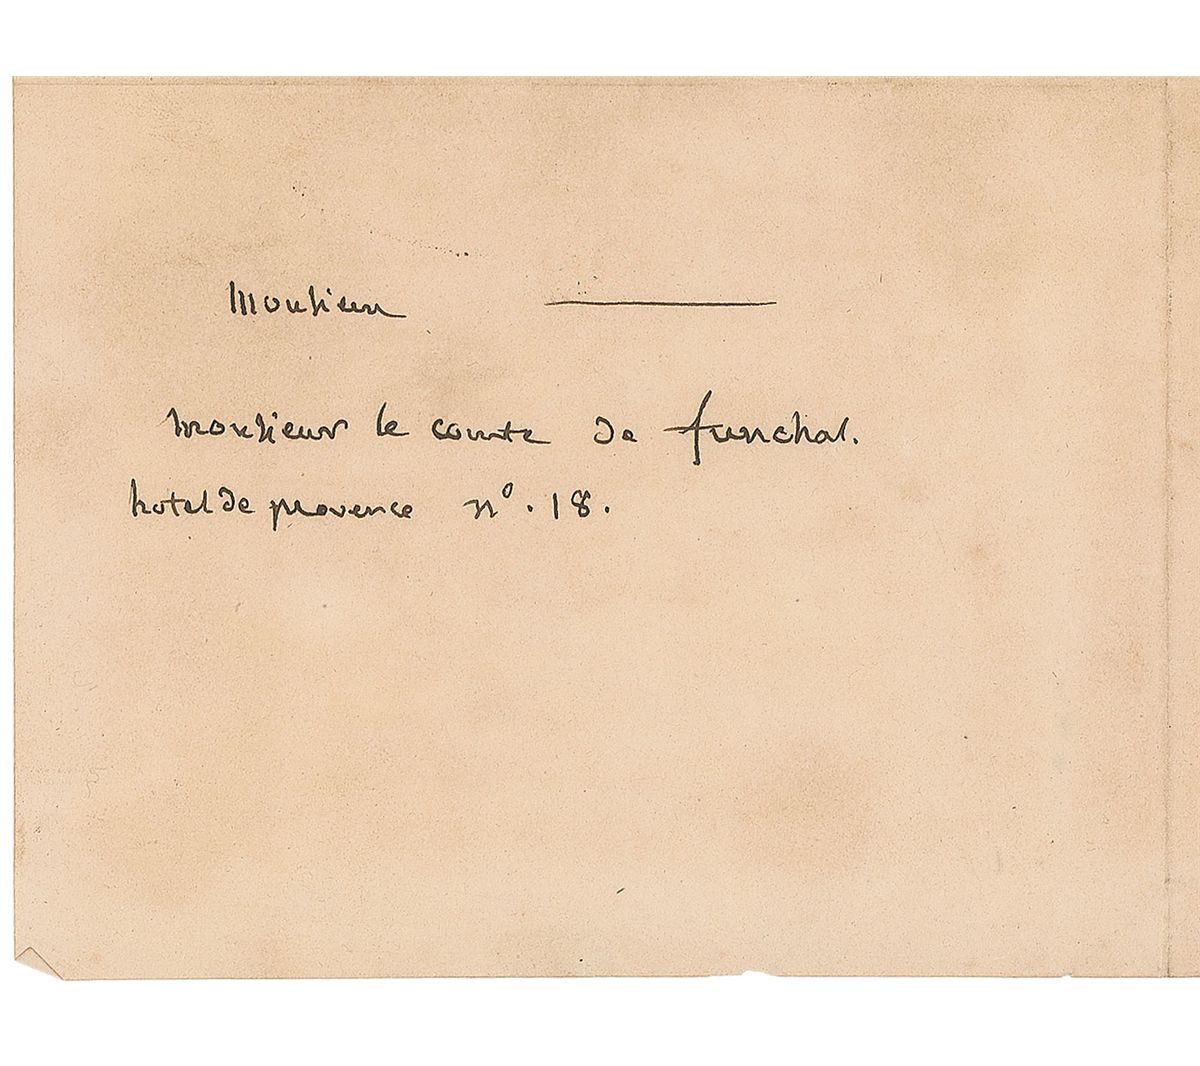 Monsieur
monsieur le comte de funchal.
hotel de provence nº. 18.